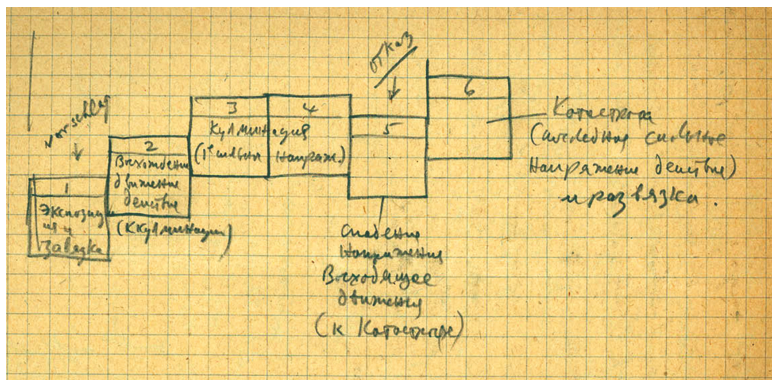 Vorschlag
1
Экспозиция
и
завязка
2
Восхождение
движение
действие
(К Кулминации)
3
4
Кулминация
(1ое сильн. Напряж.)
отказ
5
Спадение
Напряжения
Восходящее
движения
(к Катастрофе)
6
Катастрофа
(последние сильное
Напряжение действие)
и развязка.